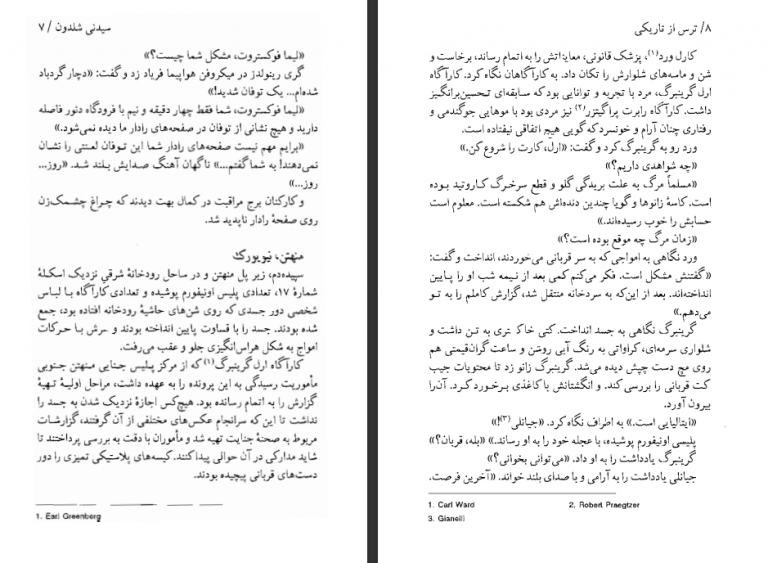 سیدنی شلدون / ۷
«لیما فوکستروت، مشکل شما چیست؟»
گری رینولدز در میکروفن هواپیما فریاد زد و گفت: «دچار گردباد
شده‌ام... یک توفان شدید!»
«لیما فوکستروت، شما فقط چهار دقیقه و نیم با فرودگاه دنور فاصله
دارید و هیچ نشانی از توفان در صفحه‌های رادار ما دیده نمی‌شود.»
«برایم مهم نیست صفحه‌های رادار شما این توفان لعنتی را نشان
نمی‌دهند! به شما گفتم...» ناگهان آهنگ صدایش بلند شد. «روز...
روز...»
و کارکنان برج مراقبت در کمال بهت دیدند که چراغ چشمک‌زن
روی صفحهٔ رادار ناپدید شد.
منهتن، نیویورک
سپیده‌دم، زیر پل منهتن و در ساحل رودخانهٔ شرقی نزدیک اسکلهٔ
شمارهٔ ۱۷، تعدادی پلیس اونیفورم پوشیده و تعدادی کارآگاه با لباس
شخصی دور جسدی که روی شن‌های حاشیهٔ رودخانه افتاده بود، جمع
شده بودند. جسد را با قساوت پایین انداخته بودند و سرش با حرکات
امواج به شکل هراس‌انگیزی جلو و عقب می‌رفت.
کارآگاه ارل گرینبرگ(۱) که از مرکز پلیس جنایی منهتن جنوبی
مأموریت رسیدگی به این پرونده را به عهده داشت، مراحل اولیهٔ تهیهٔ
گزارش را به اتمام رسانده بود. هیچ‌کس اجازهٔ نزدیک شدن به جسد را
نداشت تا این که سرانجام عکس‌های مختلفی از آن گرفتند، گزارشات
مربوط به صحنهٔ جنایت تهیه شد و مأموران با دقت به بررسی پرداختند تا
شاید مدارکی در آن حوالی پیدا کنند. کیسه‌های پلاستیکی تمیزی را دور
دست‌های قربانی پیچیده بودند.
1. Earl Greenberg
۸/ ترس از تاریکی
کارل ورد(۱)، پزشک قانونی، معایناتش را به اتمام رساند، برخاست و
شن و ماسه‌های شلوارش را تکان داد. به کارآگاهان نگاه کرد. کارآگاه
ارل گرینبرگ، مرد با تجربه و توانایی بود که سابقه‌ای تحسین‌برانگیز
داشت. کارآگاه رابرت پراگیتزر(۲) نیز مردی بود با موهایی جوگندمی و
رفتاری چنان آرام و خونسرد که گویی هیچ اتفاقی نیفتاده است.
ورد رو به گرینبرگ کرد و گفت: «ارل، کارت را شروع کن.»
«چه شواهدی داریم؟»
«مسلماً مرگ به علت بریدگی گلو و قطع سرخرگ کاروتید بوده
است. کاسهٔ زانوها و گویا چندین دنده‌اش هم شکسته است. معلوم است
حسابش را خوب رسیده‌اند.»
«زمان مرگ چه موقع بوده است؟»
ورد نگاهی به امواجی که به سر قربانی می‌خوردند، انداخت و گفت:
«گفتنش مشکل است. فکر می‌کنم کمی بعد از نیمه شب او را پایین
انداخته‌اند. بعد از این‌که به سردخانه منتقل شد، گزارش کاملم را به تو
می‌دهم.»
گرینبرگ نگاهی به جسد انداخت. کتی خاکستری به تن داشت و
شلواری سرمه‌ای، کراواتی به رنگ آبی روشن و ساعت گران‌قیمتی هم
روی مچ دست چپش دیده می‌شد. گرینبرگ زانو زد تا محتویات جیب
کت قربانی را بررسی کند. و انگشتانش با کاغذی برخورد کرد. آن‌را
بیرون آورد.
«ایتالیایی است.» به اطراف نگاه کرد. «جیانلی(۳)!»
پلیسی اونیفورم پوشیده، با عجله خود را به او رساند.» «بله، قربان؟»
گرینبرگ یادداشت را به او داد. «می‌توانی بخوانی؟»
جیانلی یادداشت را به آرامی و با صدای بلند خواند. «آخرین فرصت.
1. Carl Ward 2. Robert Praegtzer
3. Gianelli